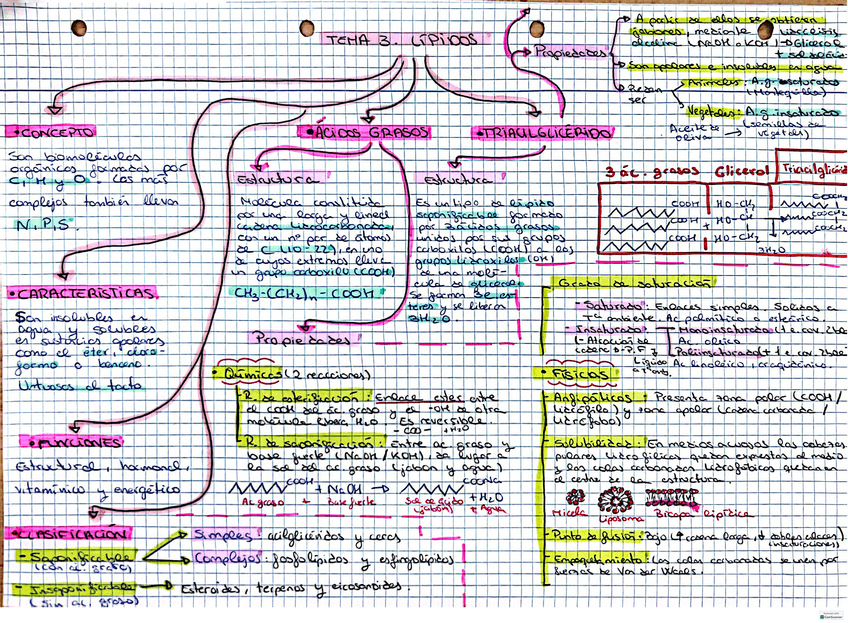 TEMA 3. LÍPIDOS
• CONCEPTO
Son biomoléculas
orgánicas formadas por
C, H y O. Los más
complejos también llevan
N, P, S.
• CARACTERÍSTICAS.
Son insolubles en
agua y solubles
en sustancias apolares
como el éter, cloro-
formo o benceno.
Untuosos al tacto
• FUNCIONES
Estructural, hormonal,
vitamínico y energético
• CLASIFICACIÓN
- Saponificable
(con ác. graso)
Simples: acilglicéridos y ceras
Complejos: fosfolípidos y esfingolípidos
- Insaponificable
(sin ác. graso)
Esteroides, terpenos y eicosanoides.
• ÁCIDOS GRASOS
Estructura
Molécula constituida
por una larga y lineal
cadena hidrocarbonada,
con un nº par de átomos
de C (10-22), en uno
de cuyos extremos lleva
un grupo carboxilo (COOH)
CH3-(CH2)n-COOH
Propiedades
• Químicas (2 reacciones)
R. de esterificación: Enlace éster entre
el COOH del ác graso y el -OH de otra
molécula. H2O. Es reversible.
-COO- +H2O
R. de saponificación: Entre ác graso y
base fuerte (NaOH / KOH), da lugar a
la sal del ác graso (jabón y agua)
COOH + NaOH → COONa + H2O
Ác graso + Base fuerte
Sal de ácido
(jabón) + Agua
• TRIACILGLICÉRIDO
Estructura
Es un tipo de lípido
saponificable formado
por 3 ácidos grasos
unidos por sus grupos
carboxilos (COOH) a los
grupos hidroxilos (OH)
de una molé-
cula de glicerol
Se forman 3 és-
teres y se libera
3H2O.
Propiedades
A partir de ellos se obtienen
jabones, mediante hidrólisis
alcalina (NaOH o KOH) → Glicerol
+ sal de ácido
Son apolares e insolubles en agua
Pueden
ser
Animales: A.g. saturado
(Mantequilla)
Vegetales: A.g. insaturado
Aceite de
oliva → (semillas de
vegetales)
3 ác. grasos Glicerol Triacilglicérido
COOH HO-CH2 COOCH2
COOH + HO-CH COOCH
COOH HO-CH2 COOCH2
3H2O
Grado de saturación
- Saturado: Enlaces simples. Sólidos a
Tª ambiente. Ác palmítico o esteárico.
- Insaturado: Monoinsaturado (1 e. cov. doble)
Ác oleico
Poliinsaturado (+1 e. cov. doble)
Líquido
Ác linoleico, araquidónico.
• Físicas
- Anfipáticos: Presenta zona polar (COOH /
hidrófila) y zona apolar (cadena carbonada /
hidrófoba)
- Solubilidad: En medios acuosos las cabezas
polares hidrofílicas quedan expuestas al medio
y las colas carbonadas hidrofóbicas quedan en
el centro de la estructura.
Micela Liposoma Bicapa lipídica
- Punto de fusión: Bajo (↑ cadena larga, ↓ dobles enlaces)
(insaturaciones)
- Empaquetamiento: Las colas carbonadas se unen por
fuerzas de Van der Waals.